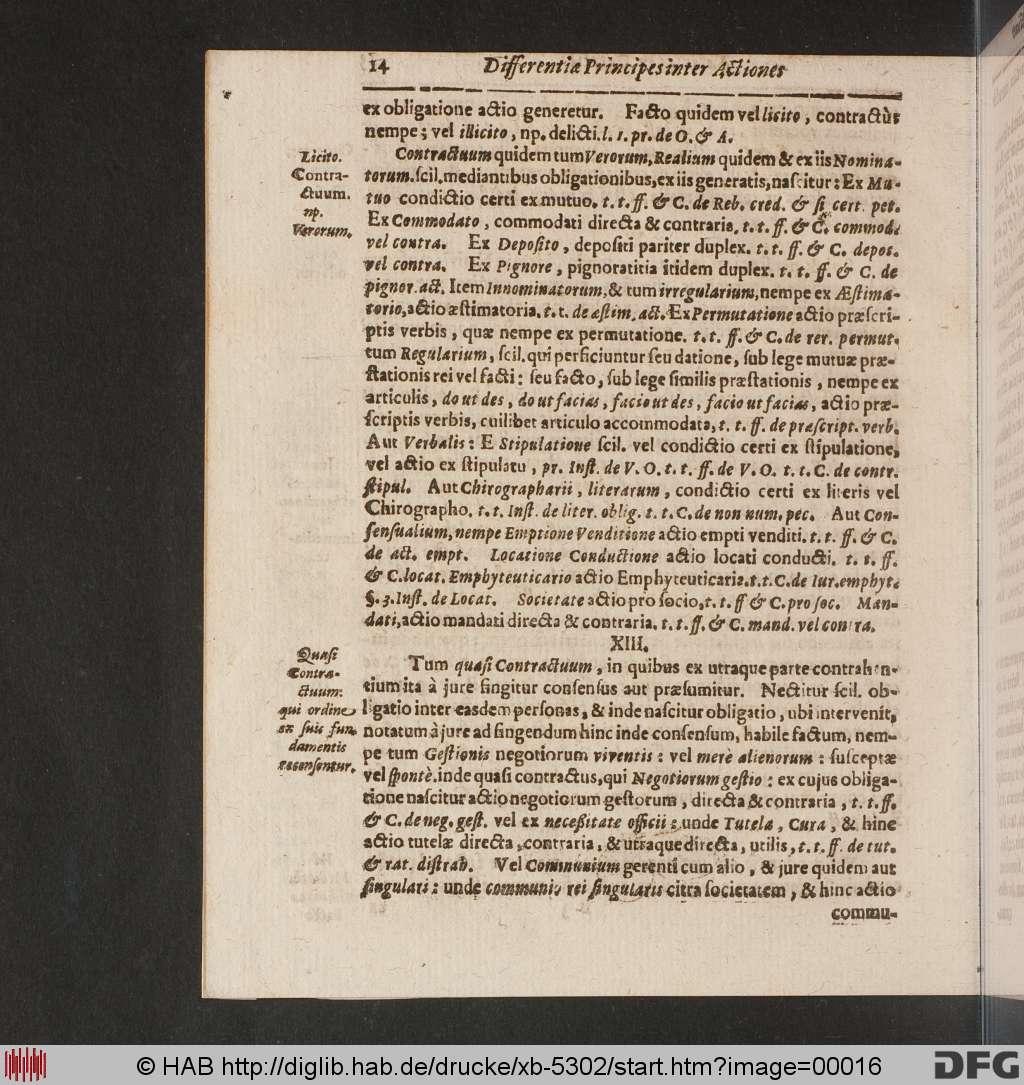 14 Differentiæ Principes inter Actiones
ex obligatione actio generetur. Facto quidem vel licito, contractûs
nempe; vel illicito, np. delicti. l. 1. pr. de O. & A.
Licito.
Contra-
ctuum.
np.
Verorum.
Contractuum quidem tum Verorum, Realium quidem & ex iis Nomina-
torum. scil. mediantibus obligationibus, ex iis generatis, nascitur: Ex Mu-
tuo condictio certi ex mutuo. t. t. ff. & C. de Reb. cred. & si cert. pet.
Ex Commodato, commodati directa & contraria. t. t. ff. & C. commod.
vel contra. Ex Deposito, depositi pariter duplex. t. t. ff. & C. depos.
vel contra. Ex Pignore, pignoratitia itidem duplex. t. t. ff. & C. de
pignor. act. Item Innominatorum, & tum irregularium, nempe ex Æstima-
torio, actio æstimatoria. t. t. de æstim. act. Ex Permutatione actio præscri-
ptis verbis, quæ nempe ex permutatione. t. t. ff. & C. de rer. permut.
tum Regularium, scil. qui perficiuntur seu datione, sub lege mutuæ præ-
stationis rei vel facti: seu facto, sub lege similis præstationis, nempe ex
articulis, do ut des, do ut facias, facio ut des, facio ut facias, actio præ-
scriptis verbis, cuilibet articulo accommodata, t. t. ff. de præscript. verb.
Aut Verbalis: E Stipulatione scil. vel condictio certi ex stipulatione,
vel actio ex stipulatu, pr. Inst. de V. O. t. t. ff. de V. O. t. t. C. de contr.
stipul. Aut Chirographarii, literarum, condictio certi ex literis vel
Chirographo. t. t. Inst. de liter. oblig. t. t. C. de non num. pec. Aut Con-
sensualium, nempe Emptione Venditione actio empti venditi. t. t. ff. & C.
de act. empt. Locatione Conductione actio locati conducti. t. t. ff.
& C. locat. Emphyteuticario actio Emphyteuticaria. t. t. C. de Iur. emphyt.
§. 3. Inst. de Locat. Societate actio pro socio, t. t. ff & C. pro soc. Man-
dati, actio mandati directa & contraria. t. t. ff. & C. mand. vel contra.
XIII.
Quasi
Contra-
ctuum:
qui ordine
ex suis fun-
damentis
recensentur.
Tum quasi Contractuum, in quibus ex utraque parte contrahen-
tium ita à jure fingitur consensus aut præsumitur. Nectitur scil. ob-
ligatio inter easdem personas, & inde nascitur obligatio, ubi intervenit,
notatum à jure ad fingendum hinc inde consensum, habile factum, nem-
pe tum Gestionis negotiorum viventis: vel merè alienorum: susceptæ
vel spontè. inde quasi contractus, qui Negotiorum gestio: ex cujus obliga-
tione nascitur actio negotiorum gestorum, directa & contraria, t. t. ff.
& C. de neg. gest. vel ex necessitate officii: unde Tutela, Cura, & hinc
actio tutelæ directa, contraria, & utraque directa, utilis, t. t. ff. de tut.
& rat. distrab. Vel Communium gerenti cum alio, & jure quidem aut
singulari: unde communio rei singularis citra societatem, & hinc actio
commu-
© HAB http://diglib.hab.de/drucke/xb-5302/start.htm?image=00016
DFG